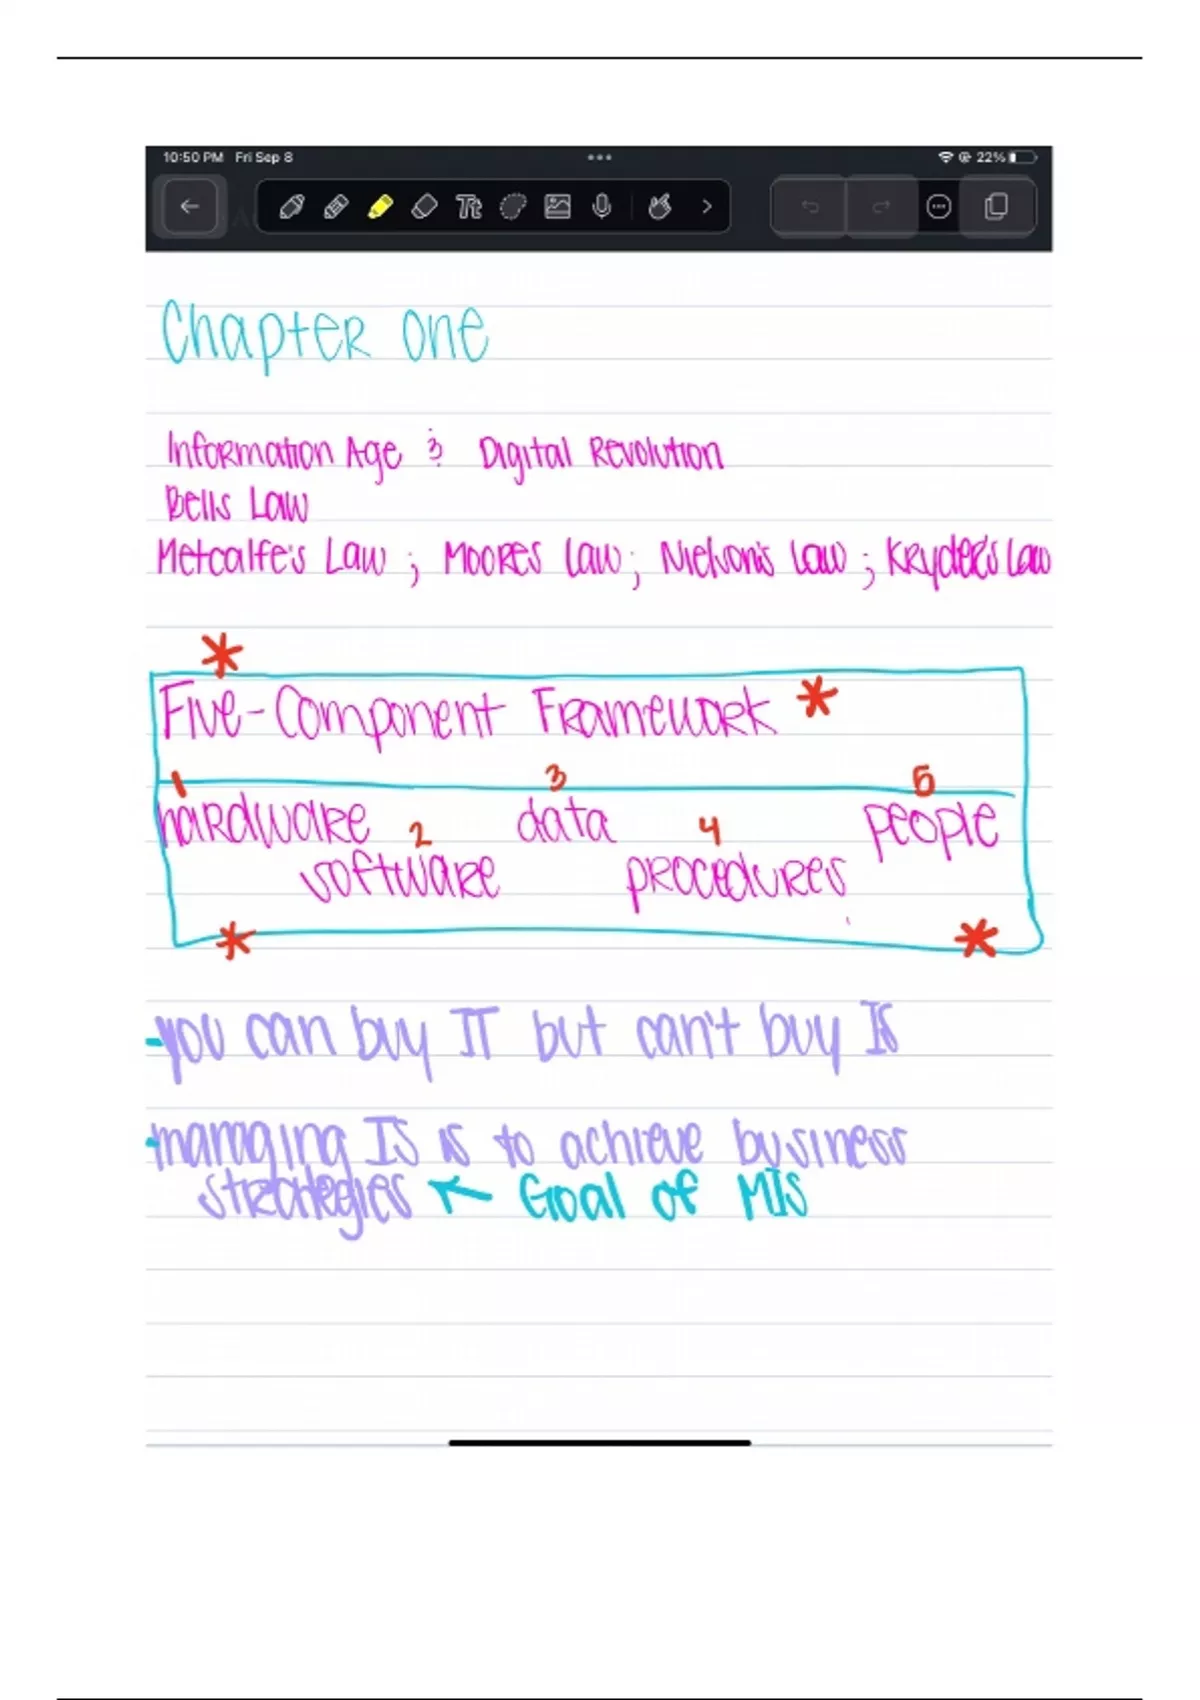 10:50 PM Fri Sep 8 22%
Chapter one
Information Age & Digital Revolution
Bells Law
Metcalfe's Law ; Moores Law ; Nielson's Law ; Kryder's Law
* Five-Component Framework *
1 hardware 2 software 3 data 4 procedures 5 people
* *
-you can buy IT but can't buy IS
-managing IS is to achieve business
strategies ← Goal of MIS